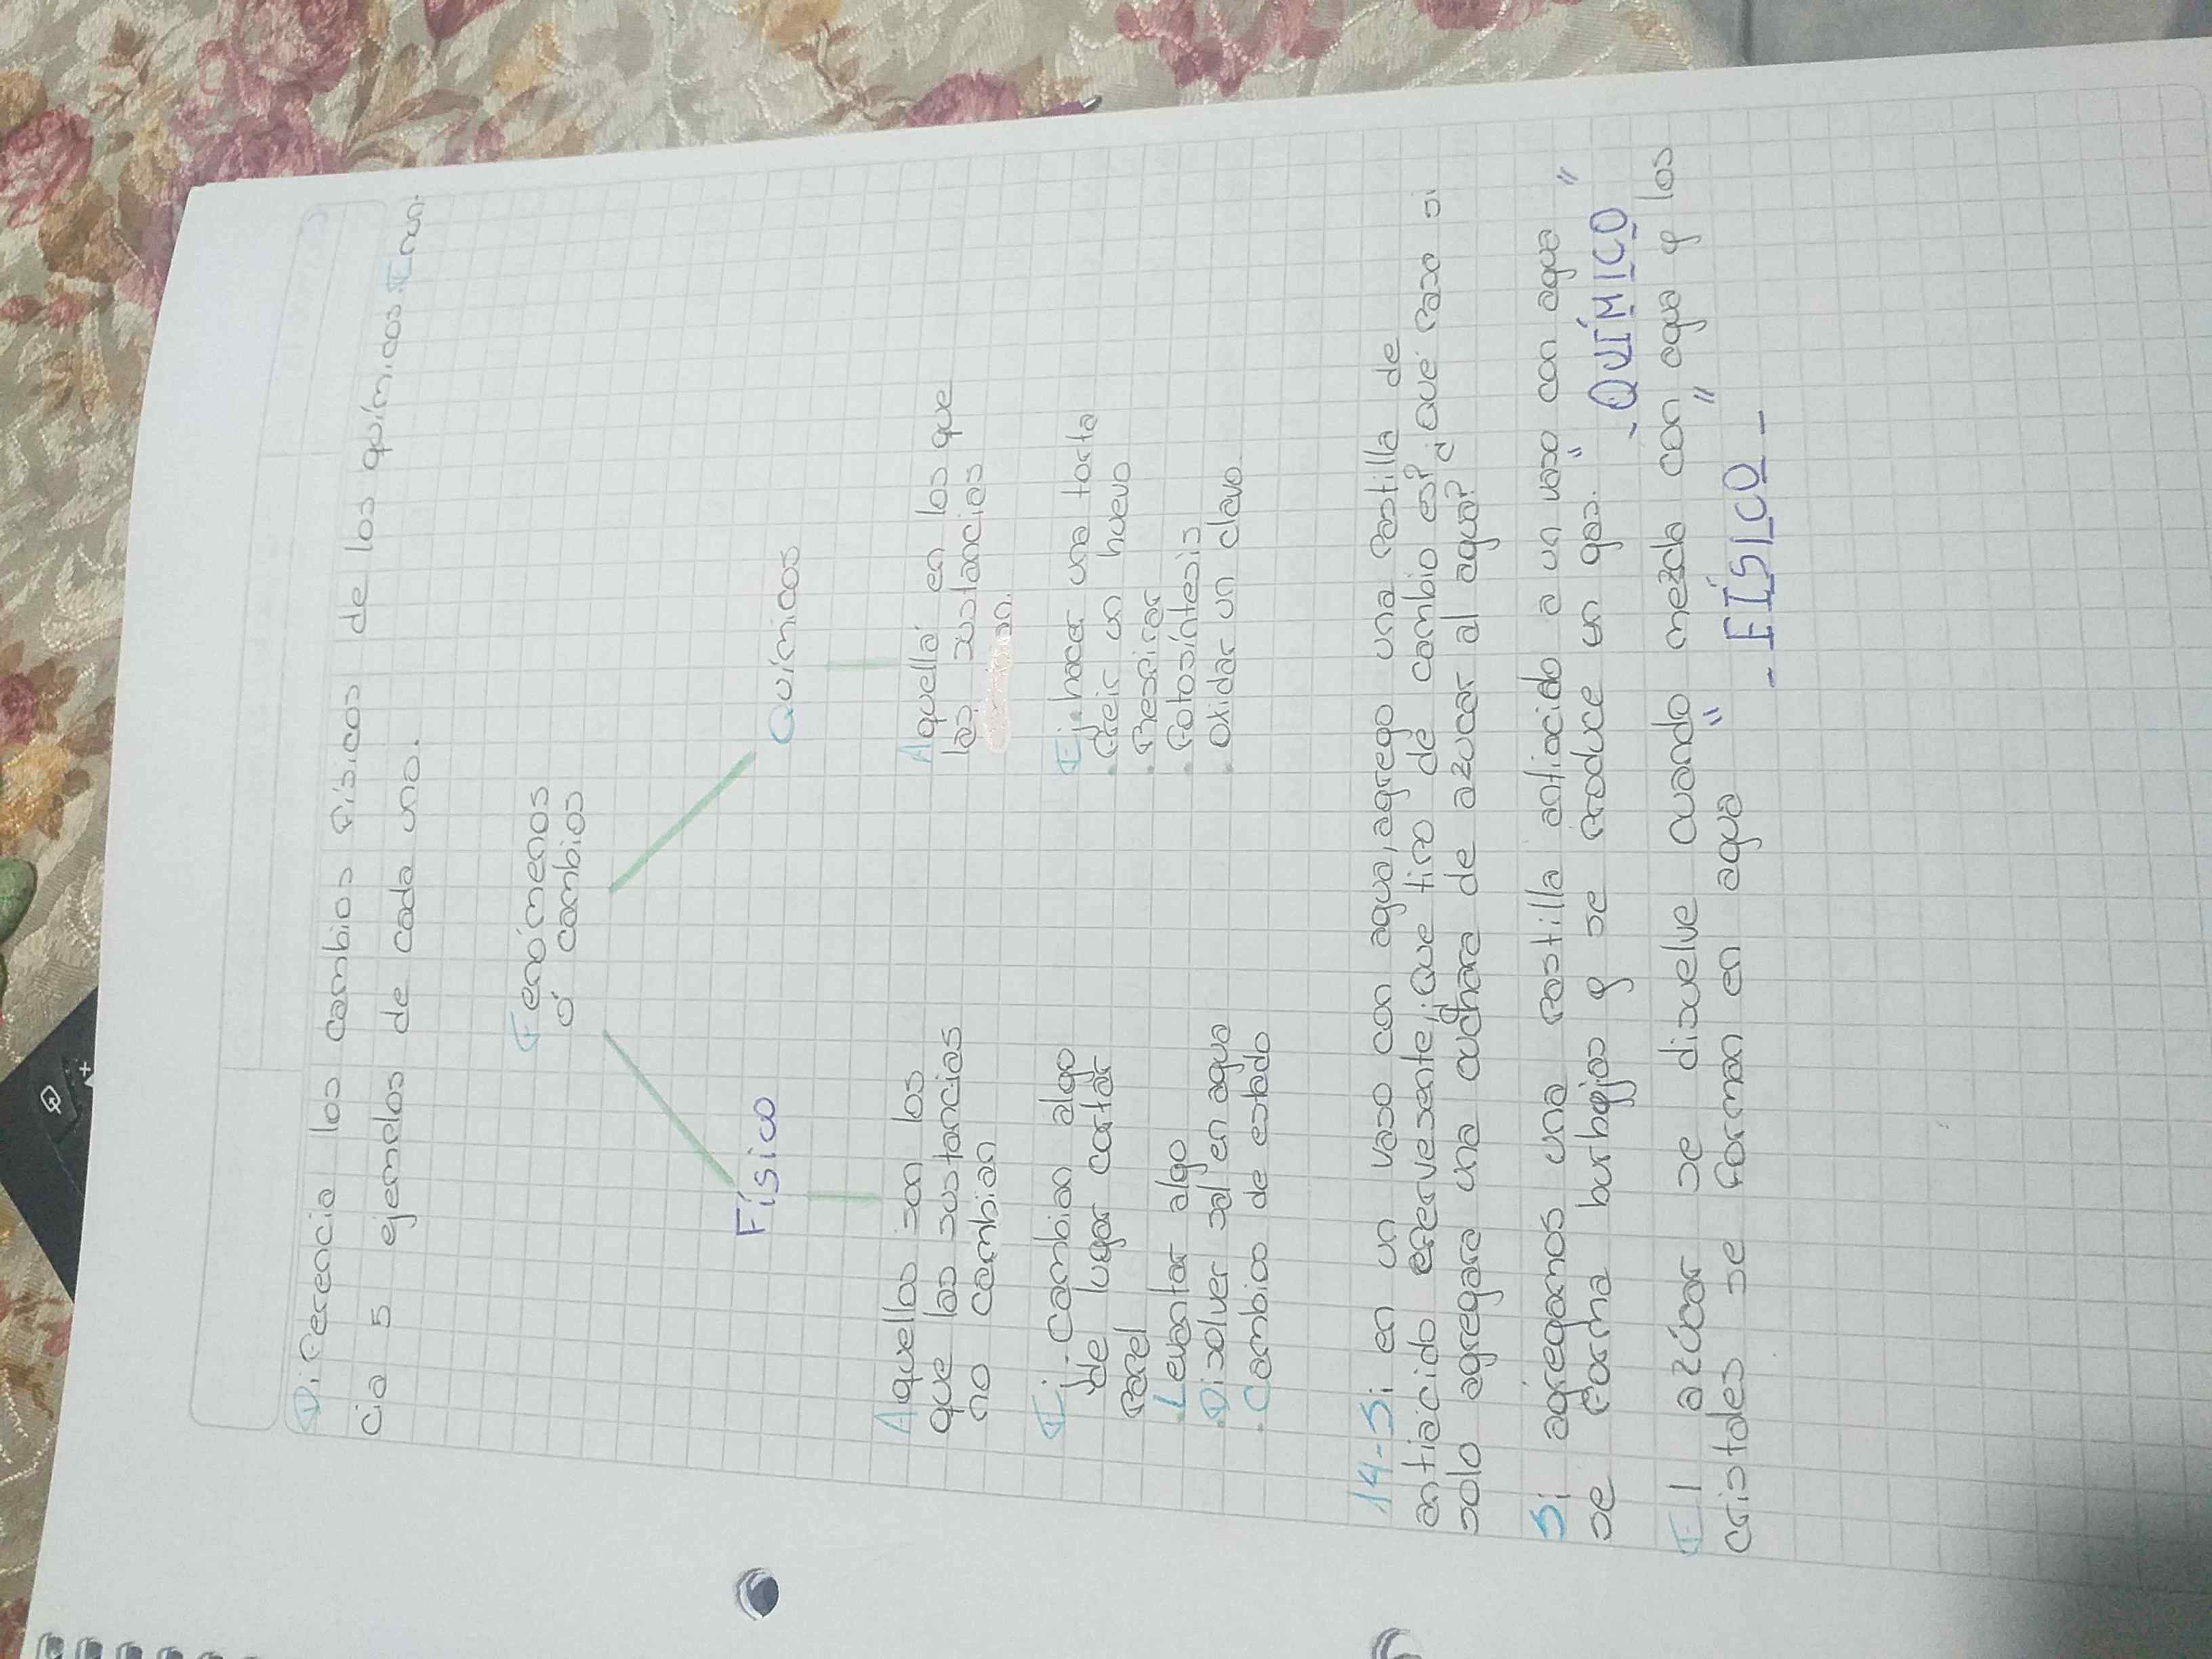 Diferencia los cambios físicos de los químicos. Enun.
cia 5 ejemplos de cada uno.
Fenómenos
ó cambios
Físico
Químicos
Aquellos son los
que las sustancias
no cambian
Ej. Cambian algo
de lugar cortar
Papel
. Levantar algo
. Disolver sal en agua
. Cambios de estado
Aquella en los que
las sustancias
Ej. hacer una torta
. Freir un huevo
. Respirar
. Fotosíntesis
. Oxidar un clavo.
14-Si en un vaso con agua, agrego una Pastilla de
antiacido efervesente, ¿Que tipo de cambio es? ¿Qué Paso si
solo agregara una cuchara de azucar al agua?
Si agregamos una Pastilla antiacido a un vaso con agua "
se forma burbujas y se Produce un gas. "
- QUÍMICO
El azúcar se disuelve cuando mezcla con agua y los
cristales se forman en agua " "
- FÍSICO -